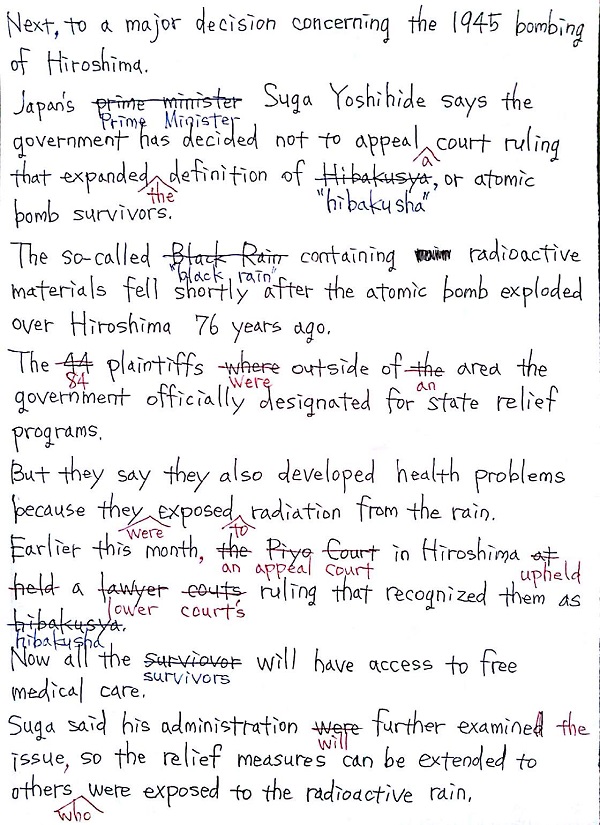 Next, to a major decision concerning the 1945 bombing
of Hiroshima.
Japan's prime minister Suga Yoshihide says the
Prime Minister
government has decided not to appeal court ruling
a
that expanded definition of Hibakusya, or atomic
the "hibakusha"
bomb survivors.
The so-called Black Rain containing radioactive
"black rain"
materials fell shortly after the atomic bomb exploded
over Hiroshima 76 years ago.
The 44 plaintiffs where outside of the area the
84 were an
government officially designated for state relief
programs.
But they say they also developed health problems
because they exposed radiation from the rain.
were to
Earlier this month, the Piyo Court in Hiroshima at
an appeal court upheld
held a lawyer couts ruling that recognized them as
lower court's
hibakusya.
hibakusha
Now all the surviovor will have access to free
survivors
medical care.
Suga said his administration were further examined the
will
issue, so the relief measures can be extended to
others were exposed to the radioactive rain.
who